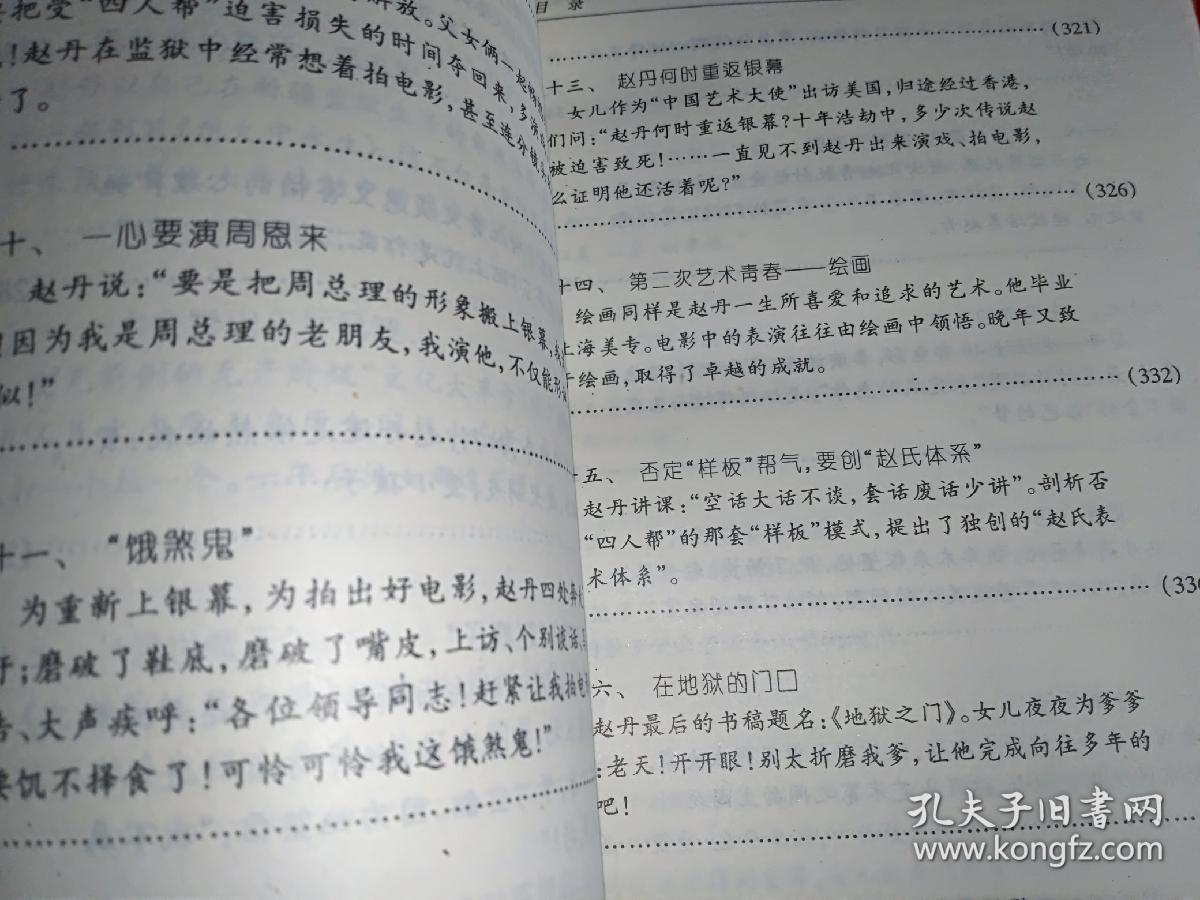 把受“四人帮”迫害损失的时间夺回来，多
！赵丹在监狱中经常想着拍电影，甚至连分
了。
十、 一心要演周恩来
赵丹说：“要是把周总理的形象搬上银幕，
因为我是周总理的老朋友，我演他，不仅能形
似！”
十一、 “饿煞鬼”
为重新上银幕，为拍出好电影，赵丹四处奔
；磨破了鞋底，磨破了嘴皮，上访、个别谈话、
、大声疾呼：“各位领导同志！赶紧让我拍电
饥不择食了！可怜可怜我这饿煞鬼！”
目 录
(321)
十三、 赵丹何时重返银幕
女儿作为“中国艺术大使”出访美国，归途经过香港，
们问：“赵丹何时重返银幕？十年浩劫中，多少次传说赵
被迫害致死！……一直见不到赵丹出来演戏、拍电影，
么证明他还活着呢？”
(326)
十四、 第二次艺术青春——绘画
绘画同样是赵丹一生所喜爱和追求的艺术。他毕业
上海美专。电影中的表演往往由绘画中领悟。晚年又致
于绘画，取得了卓越的成就。
(332)
五、 否定“样板”帮气，要创“赵氏体系”
赵丹讲课：“空话大话不谈，套话废话少讲”。剖析否
“四人帮”的那套“样板”模式，提出了独创的“赵氏表
术体系”。
(336
六、 在地狱的门口
赵丹最后的书稿题名：《地狱之门》。女儿夜夜为爹爹
：老天！开开眼！别太折磨我爹，让他完成向往多年的
吧！
孔夫子旧书网
www.kongfz.com